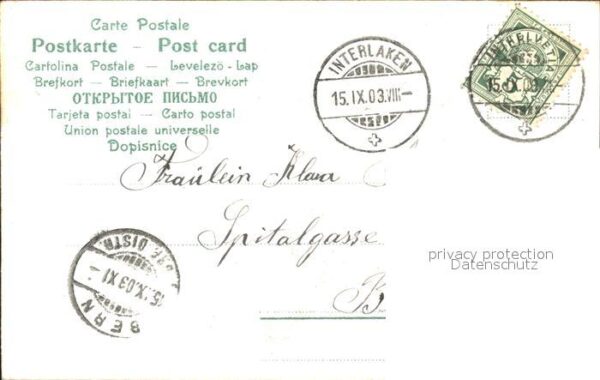 Carte Postale
Postkarte – Post card
Cartolina Postale – Levelezö-Lap
Brefkort – Briefkaart – Brevkort
ОТКРЫТОЕ ПИСЬМО
Tarjeta postal – Carto postal
Union postale universelle
Dopisnice
INTERLAKEN
15.IX.03.VIII–
HELVETIA
15.IX.03
Fräulein Klara
Spitalgasse
B
privacy protection
Datenschutz
BERN
15.IX.03 XI–
DISTR.